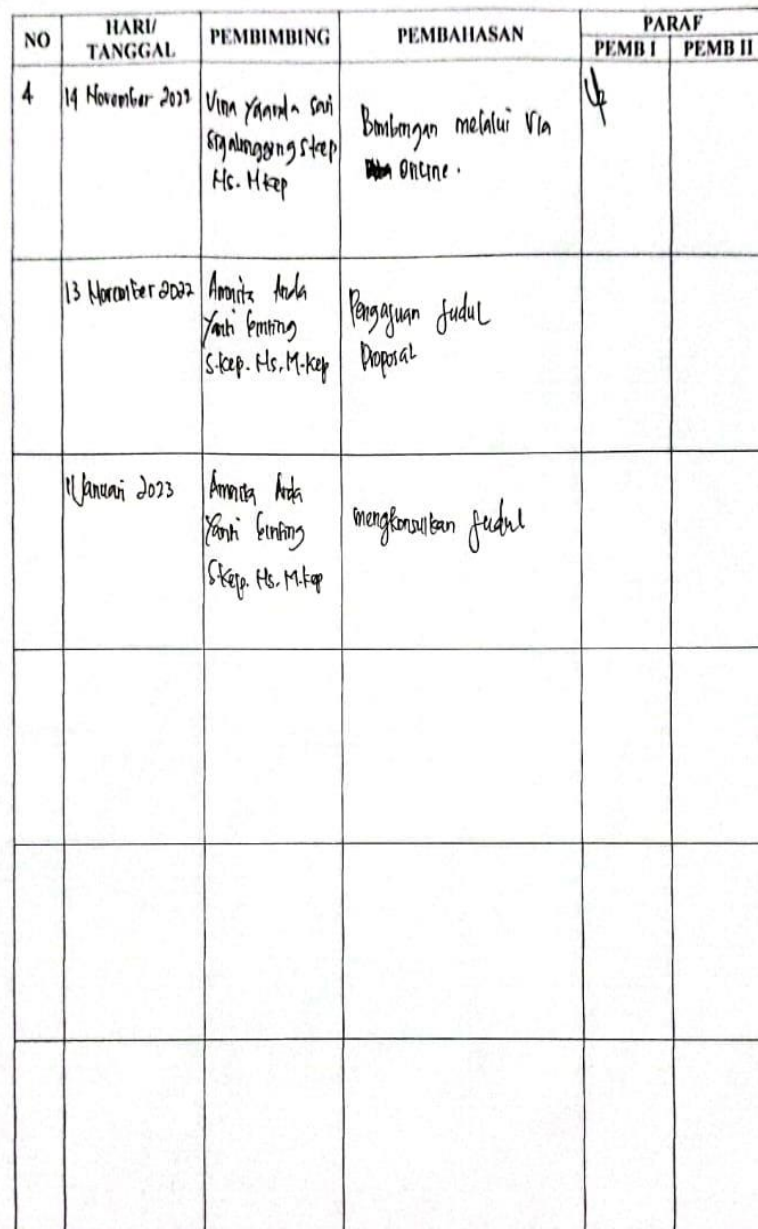 NO HARI/ TANGGAL PEMBIMBING PEMBAHASAN PARAF
PEMB I PEMB II
4 14 November 2022 Vina Yaanda Sari
Sigalingging S.kep
Ns. M.kep
Bimbingan melalui Via
Online.
13 November 2022 Amnita Anda
Yanti Ginting
S.kep. Ns. M.kep
Pengajuan Judul
Proposal
11 Januari 2023 Amnita Anda
Yanti Ginting
S.kep. Ns. M.kep
mengkonsulkan Judul